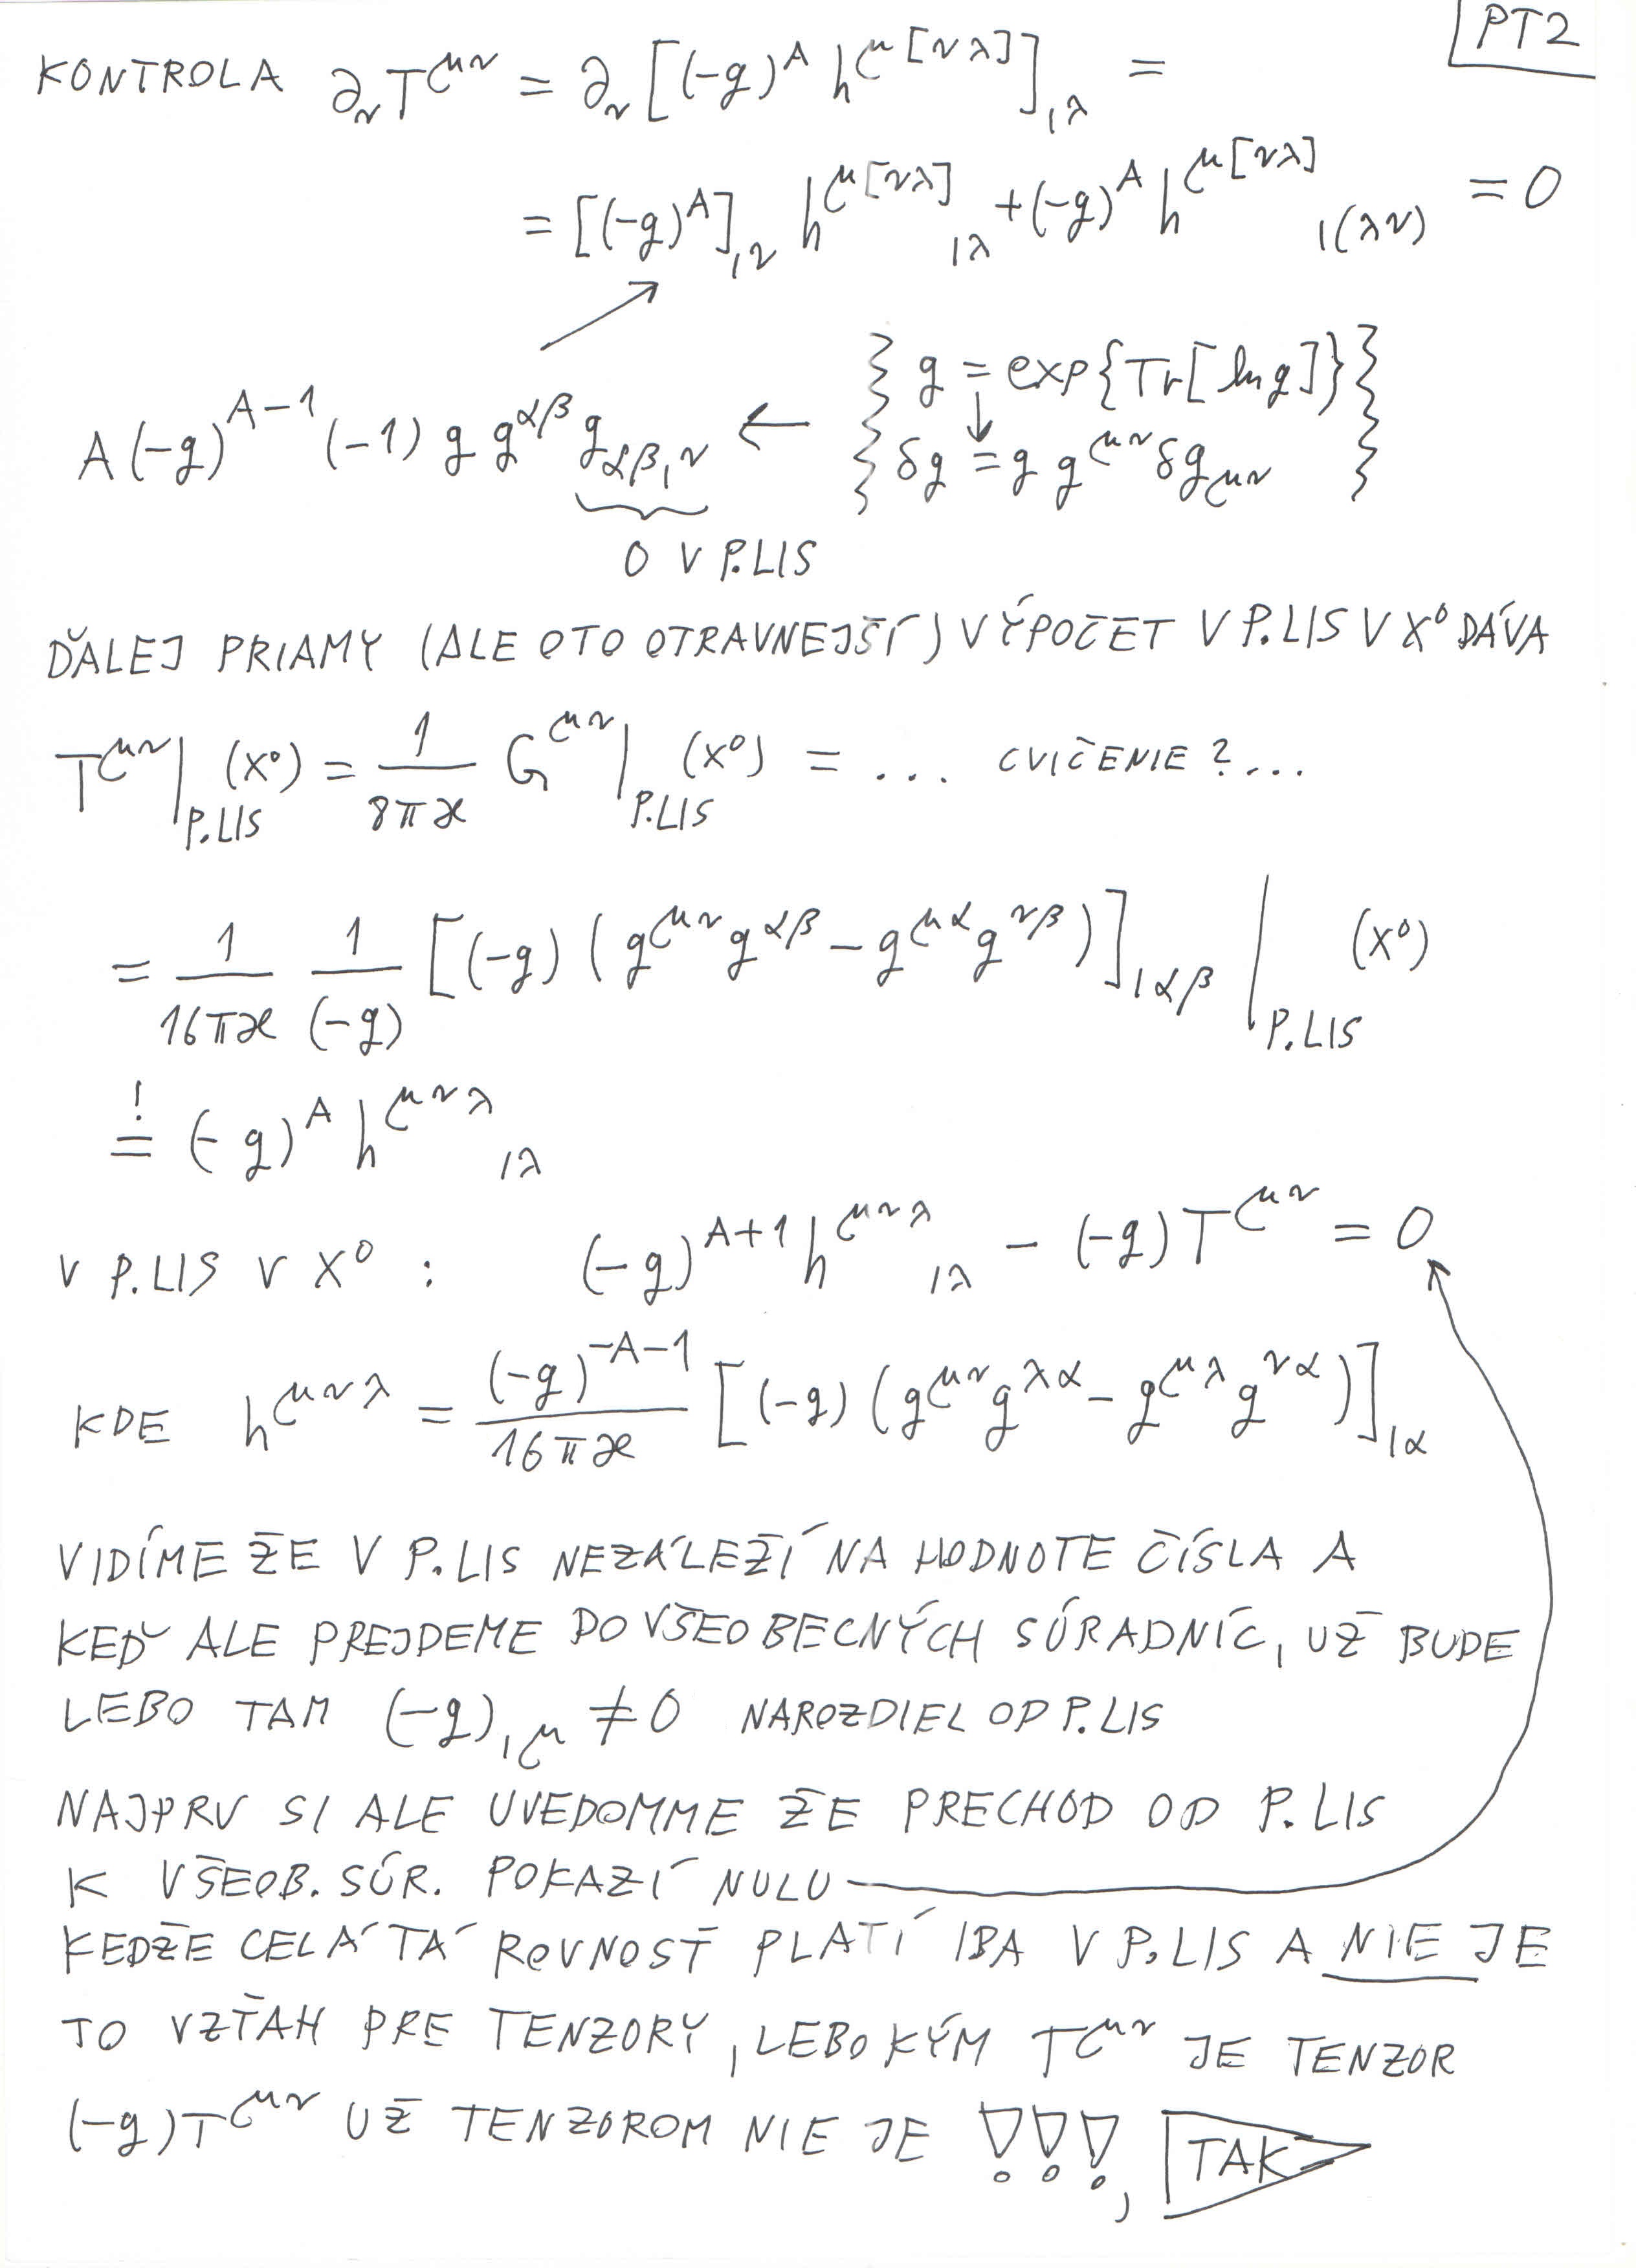 PT2
KONTROLA ∂_ν T^{μν} = ∂_ν [(-g)^A h^{μ[νλ]}]_{,λ} =
= [(-g)^A]_{,ν} h^{μ[νλ]}_{,λ} + (-g)^A h^{μ[νλ]}_{,(λν)} = 0
{ g = exp{Tr[ln g]} }
A(-g)^{A-1} (-1) g g^{αβ} g_{αβ,ν} ← { δg = g g^{μν} δg_{μν} }
0 V P.LIS
ĎALEJ PRIAMY (ALE OTO OTRAVNEJŠÍ) VÝPOČET V P.LIS V X⁰ DÁVA
T^{μν}|_{P.LIS} (X⁰) = \frac{1}{8πϰ} G^{μν}|_{P.LIS} (X⁰) = ... CVIČENIE ? ...
= \frac{1}{16πϰ} \frac{1}{(-g)} [(-g) (g^{μν} g^{αβ} - g^{μα} g^{νβ})]_{,αβ} |_{P.LIS} (X⁰)
\overset{!}{=} (-g)^A h^{μνλ}_{,λ}
V P.LIS V X⁰ : (-g)^{A+1} h^{μνλ}_{,λ} - (-g) T^{μν} = 0
KDE h^{μνλ} = \frac{(-g)^{-A-1}}{16πϰ} [(-g) (g^{μν} g^{λα} - g^{μλ} g^{να})]_{,α}
VIDÍME ŽE V P.LIS NEZÁLEŽÍ NA HODNOTE ČÍSLA A
KEĎ ALE PREJDEME DO VŠEOBECNÝCH SÚRADNÍC, UŽ BUDE
LEBO TAM (-g)_{,μ} ≠ 0 NAROZDIEL OD P.LIS
NAJPRV SI ALE UVEDOMME ŽE PRECHOD OD P.LIS
K VŠEOB. SÚR. POKAZÍ NULU
KEDŽE CELÁ TÁ ROVNOSŤ PLATÍ IBA V P.LIS A NIE JE
TO VZŤAH PRE TENZORY, LEBO KÝM T^{μν} JE TENZOR
(-g)T^{μν} UŽ TENZOROM NIE JE !!!, TAK